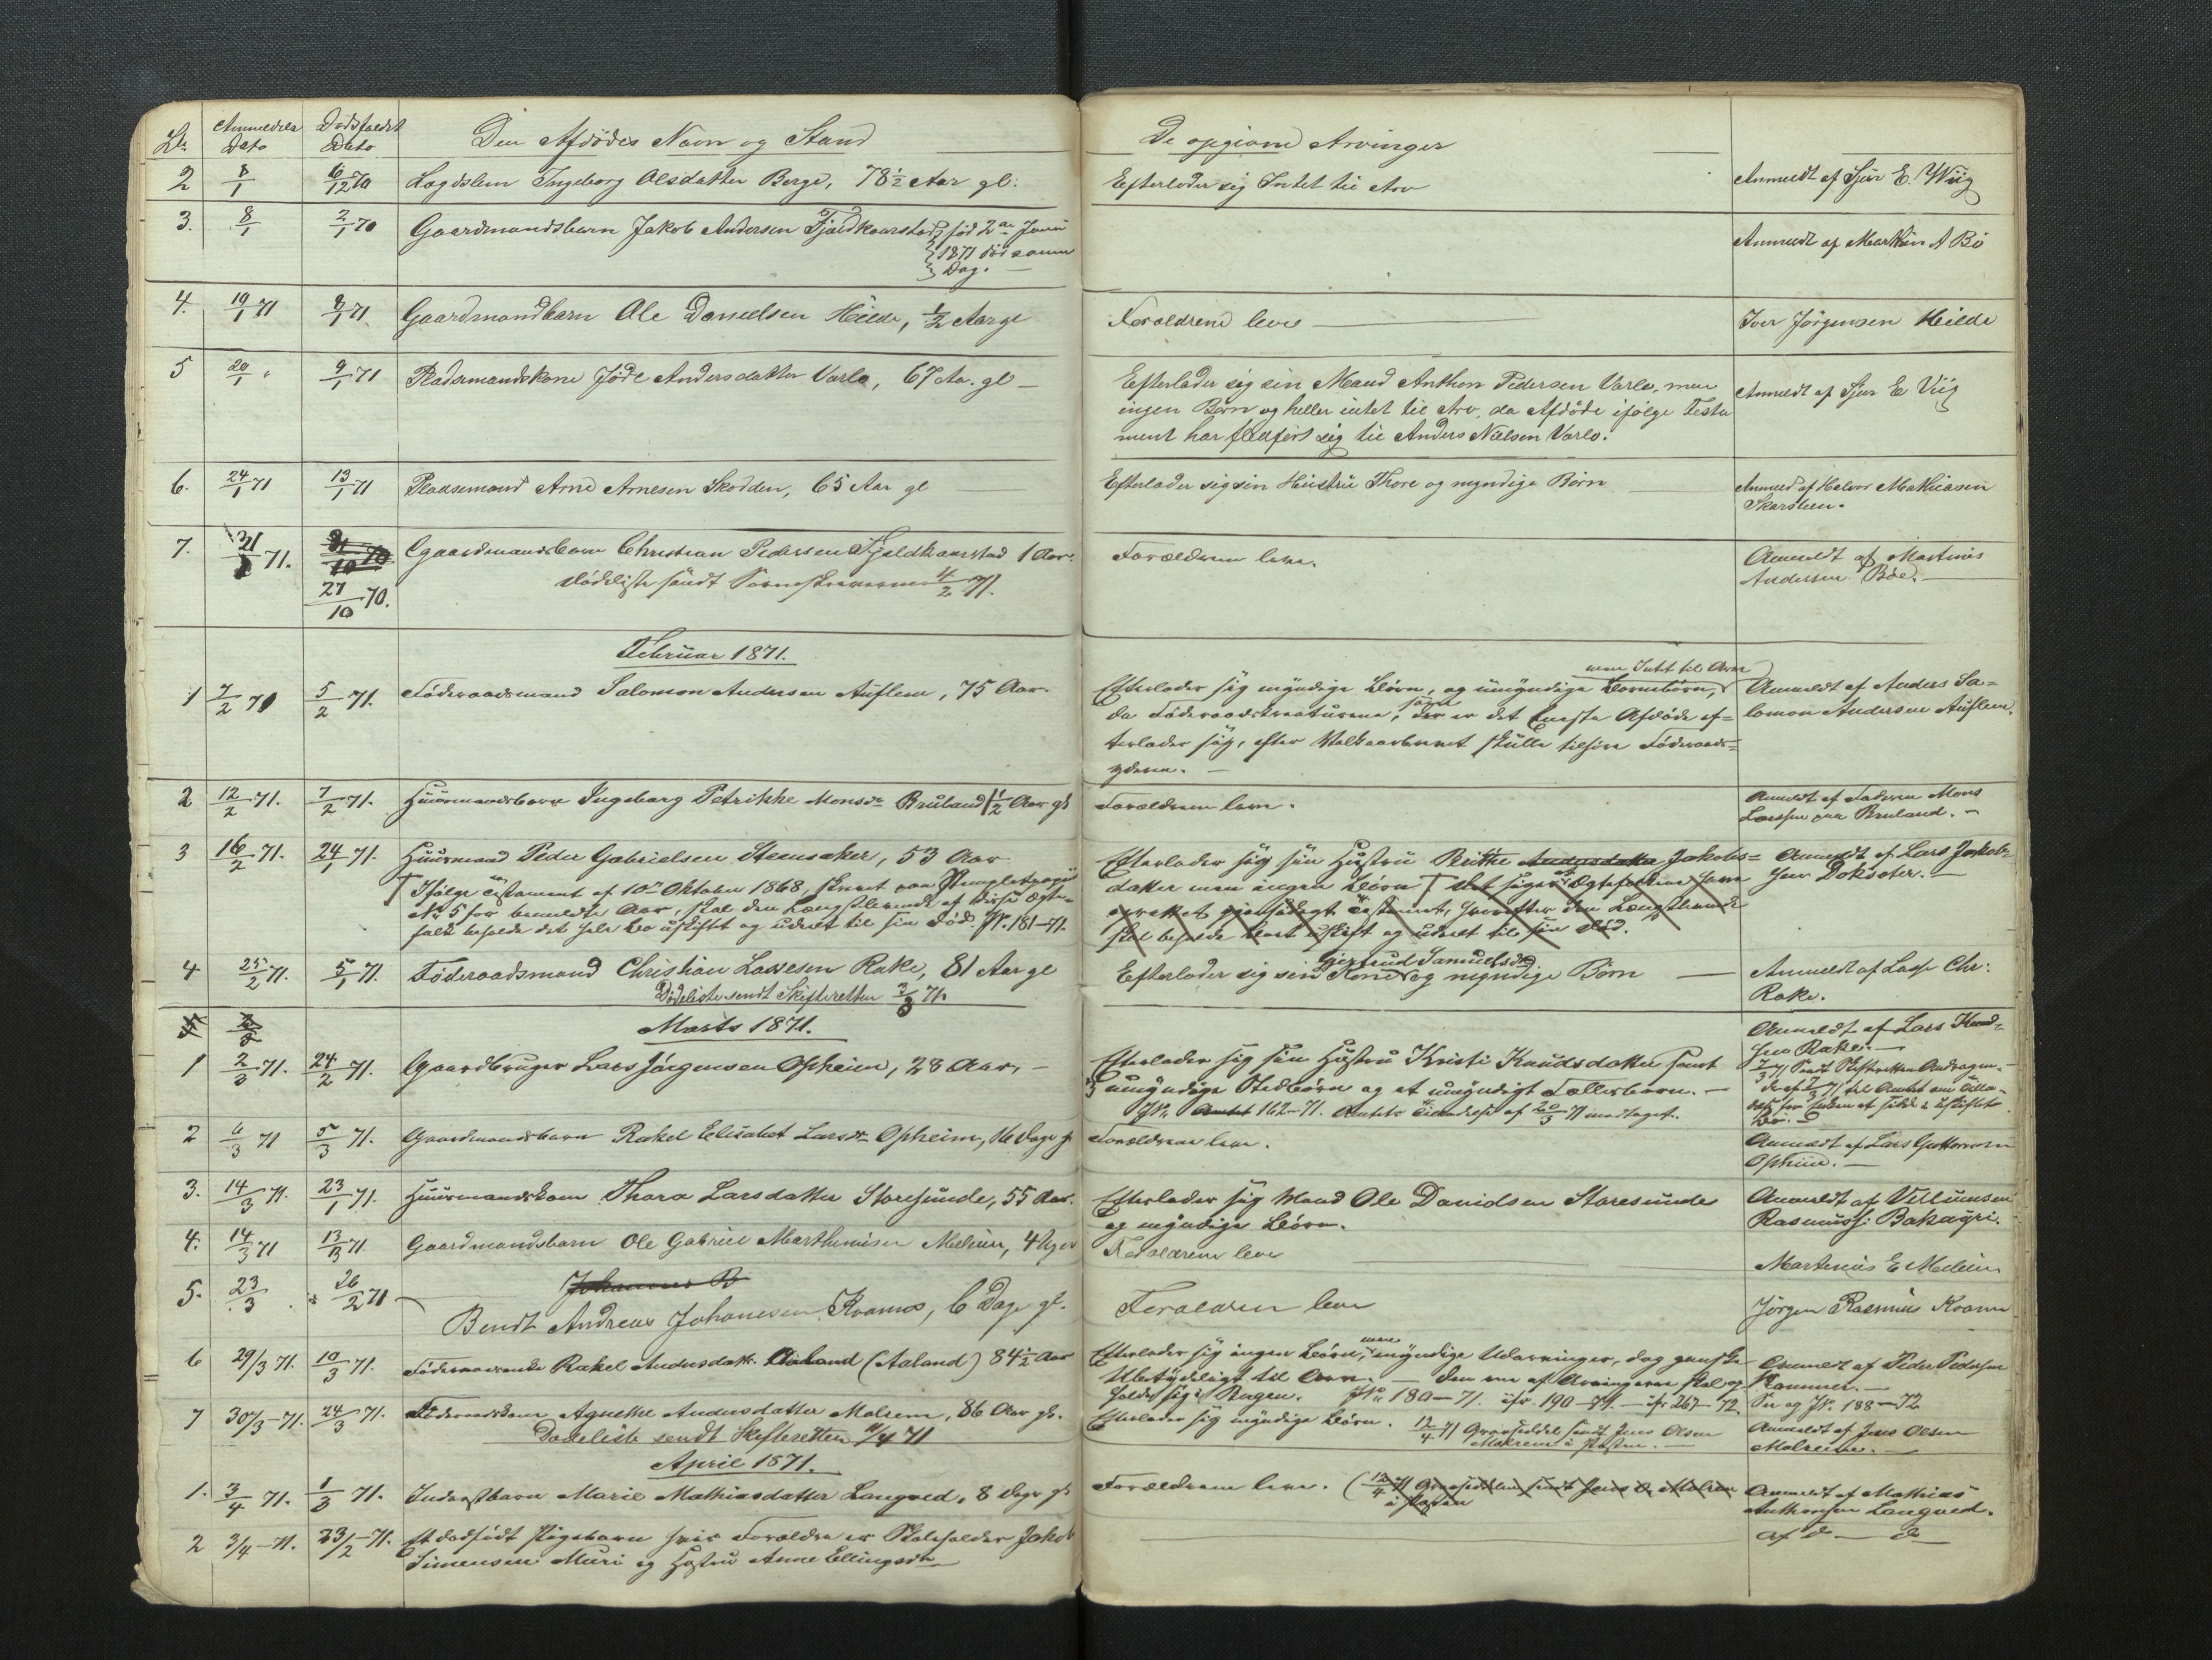 Anmeldels Dato
Dödsfaldet Dato
Den Afdödes Navn og Stand
De opgivne Arvinger
2 8/1 6/12 70 Lægdslem Ingeborg Olsdatter Berge, 78 1/2 Aar gl.
Efterlader sig Intet til Arv
Anmeldt af Sjur E. Wiig
3. 8/1 2/1 70 Gaardmandsbarn Jakob Andersen Fjeldkaarstad født 2den Januar
1871 død samme
Dag. —
Anmeldt af Martin A Bö
4. 19/1 71 8/1 71 Gaardmandbarn Ole Danielsen Heilde, 1/2 Aar gl
Foraldrene leve
Iver Jörgensen Heilde
5 20/1 " 9/1 71 Pladsmandskone Jöde Andersdatter Varlo, 67 Aar. gl —
Efterlader sig sin Mand Anthon Pedersen Varlo, men
ingen Børn og heller intet til Arv, da Afdöde ifölge Testa
ment har fledfört sig til Anders Nielsen Varlo.
Anmeldt af Sjur E Viig
6. 24/1 71 13/1 71 Pladsemand Arne Arnesen Skodden, 65 Aar gl
Efterlader sig sin Hustru Thore og myndige Börn
Anmeld af Halvor Mathiasen
Skarsteen.
7. 31/1 71. 31/10 70
27/10 70.
Gaardmandsbarn Christian Pedersen Fjeldkaarstad 1 Aar.
Dödeliste sendt Sorenskriveren 4/2 71.
Forældrene leve.
Anmeldt af Martinus
Andersen Böe. —
Februar 1871.
1 7/2 71 5/2 71. Föderaadsmand Salomon Andersen Auflem, 75 Aar.
men Intet til Arv
Efterlader sig myndige Börn, og umyndige Börnebörn,
da Föderaadskreaturene, som er det Eneste Afdöde ef=
terlader sig, efter Velkaarbrevet skulle tilhöre Föderaads=
yderen. —
Anmeldt af Anders Sa=
lomon Andersen Auflem.
2 12/2 71. 7/2 71. Huusmandsbarn Ingeborg Petrikke Monsdr Bruland 1 1/2 Aar gl
Forældrene leve.
Anmeldt af Faderen Mons
Larssen paa Bruland. —
3 16/2 71. 24/1 71. Huusmand Peder Gabrielsen Steensaker, 53 Aar
Ifølge Testament af 10de Oktober 1868, skrevet paa Stemplet papir
No 5 for benævnte Aar, skal den Længstlevende af disse Ægte=
folk beholde det hele Bo uskiftet og udeelt til sin Död. Jr. 181–71.
Efterlader sig sin Hustru Brithe Andersdatter Jakobs=
datter men ingen Börn det siges at Ægtefolkene have
oprettet gjensidigt Testament, hvorefter den Længstlevende
skal beholde Boet uskift og udeelt til sin död.
Anmeldt af Lars Jakob=
sen Doksæter. —
4 25/2 71. 5/1 71. Föderaadsmand Christian Lassesen Rake, 81 Aar gl
Dödeliste sendt Skifteretten 3/3 71.
Gjertrud Samuelsdr
Efterlader sig sin Kone og myndige Börn
Anmeldt af Lasse Chr:
Rake.
Marts 1871.
1 2/3 71. 24/2 71. Gaardbruger Lars Jörgensen Opheim, 28 Aar. —
Efterlader sig sin Hustru Kristi Knudsdatter samt
3 umyndige Stedbörn og et umyndigt Fællesbarn. —
Jr. Amtet 162–71. Amtets Tilladelse af 20/3 71 modtaget.
Anmeldt af Lars Knud=
sen Rake. —
2 6/3 71 5/3 71. Gaardmandsbarn Rakel Elisabet Larsdr Opheim, 16 Dage gl
Forældrene leve.
Anmeldt af Lars Guttormsen
Opheim. —
3. 14/3 71. 23/1 71. Huusmandskone Thora Larsdatter Storesunde, 55 Aar.
Efterlader sig Mand Ole Davidsen Storesunde
og myndige Börn.
Anmeldt af Villumsen
Rasmuss: Bakøyri.
4. 14/3 71 13/3 71. Gaardmandsbarn Ole Gabriel Marthinusen Melheim, 4 Uger
Foraldrene leve
Martinus E Melheim
5. 23/3 26/2 71 Johannes B
Bendt Andreas Johanesen Kvames, 6 Dage gl.
Foraldren leve
Jörgen Rasmus Kvame
6 29/3 71. 10/3 71. Föderaadsenke Rakel Andersdatt. Aaland (Aaland) 84 1/2 Aar
Efterlader sig ingen Börn, men myndige Udarvinger, dog ganske
Ubetydeligt til Arv. — Den ene af Arvingerne skal op
holde sig i Bergen. Jr. 180–71. isfr 190–71. – isfr 267–72.
Anmeldt af Peder Pedersen
Kammen. —
Se og Jr. 188–72
7 30/3–71. 24/3 71. Föderaadskone Agnethe Andersdatter Molrem, 86 Aar gl.
Dødeliste sendt Skifteretten 11/4 71
Efterlader sig myndige Börn. 12/4 71 Gravseddel sendt Jens Olsen
Molrem i Posten. —
Anmeldt af Jens Olsen
Molrem. —
April 1871.
1. 3/4 71. 1/3 71. Inderstbarn Marie Mathiasdatter Langved, 8 Dage gl
Forældrene leve. (12/4 71 Gravseddelen sendt Jens O. Molrem
i Posten
Anmeldt af Mathias
Anthonsen Langved.
2 3/4–71. 23/2–71. Et dødfödt Pigebarn hvis Forældre er Skoleholder Jakob
Simensen Muri og Hustru Anne Ellingsdr
af d— d—